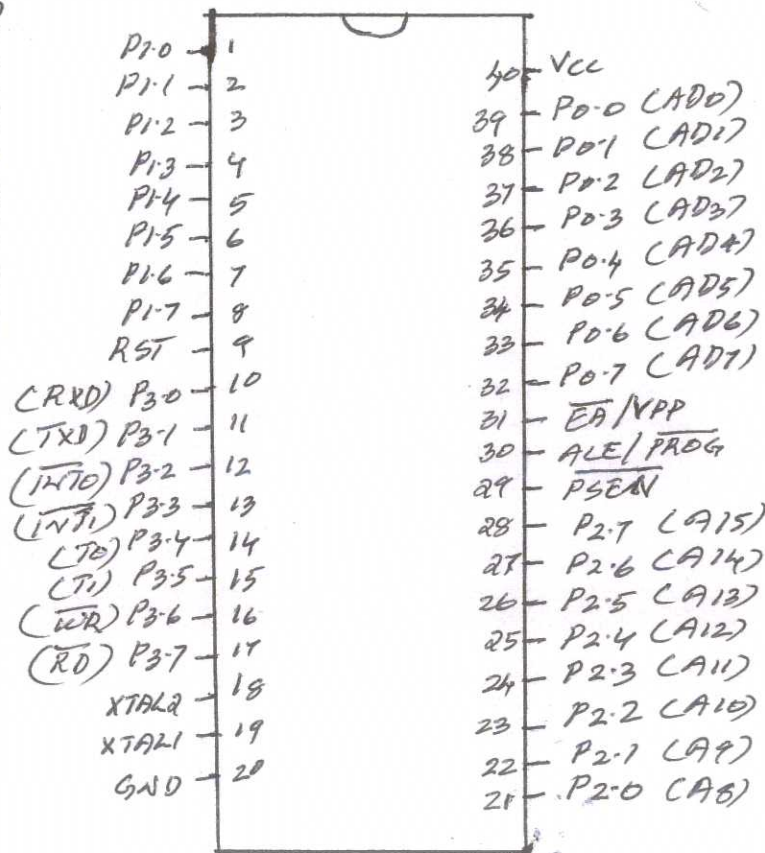 P1.0 1
P1.1 2
P1.2 3
P1.3 4
P1.4 5
P1.5 6
P1.6 7
P1.7 8
RST 9
(RXD) P3.0 10
(TXD) P3.1 11
(INT0) P3.2 12
(INT1) P3.3 13
(T0) P3.4 14
(T1) P3.5 15
(WR) P3.6 16
(RD) P3.7 17
XTAL2 18
XTAL1 19
GND 20
40 Vcc
39 P0.0 (AD0)
38 P0.1 (AD1)
37 P0.2 (AD2)
36 P0.3 (AD3)
35 P0.4 (AD4)
34 P0.5 (AD5)
33 P0.6 (AD6)
32 P0.7 (AD7)
31 EA/VPP
30 ALE/PROG
29 PSEN
28 P2.7 (A15)
27 P2.6 (A14)
26 P2.5 (A13)
25 P2.4 (A12)
24 P2.3 (A11)
23 P2.2 (A10)
22 P2.1 (A9)
21 P2.0 (A8)